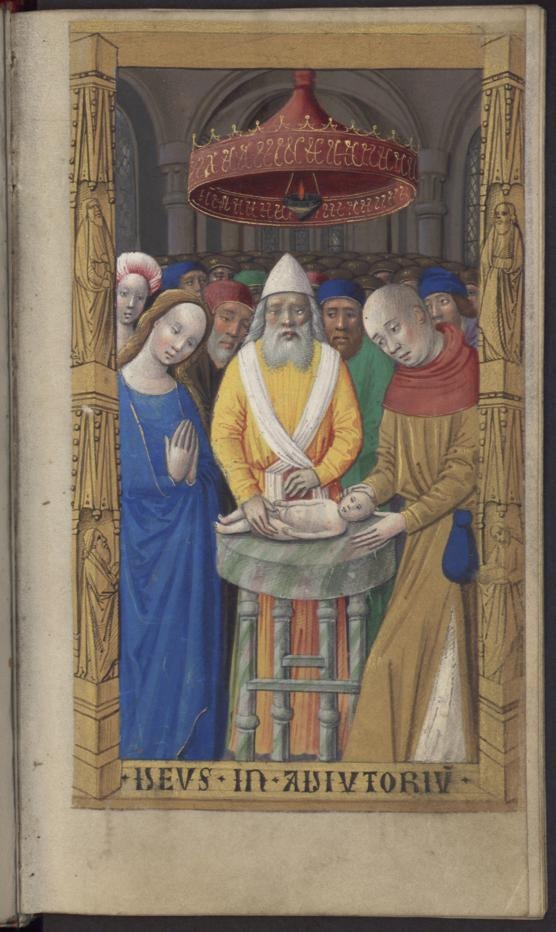 ·DEVS·IN·ADIVTORIV̄·